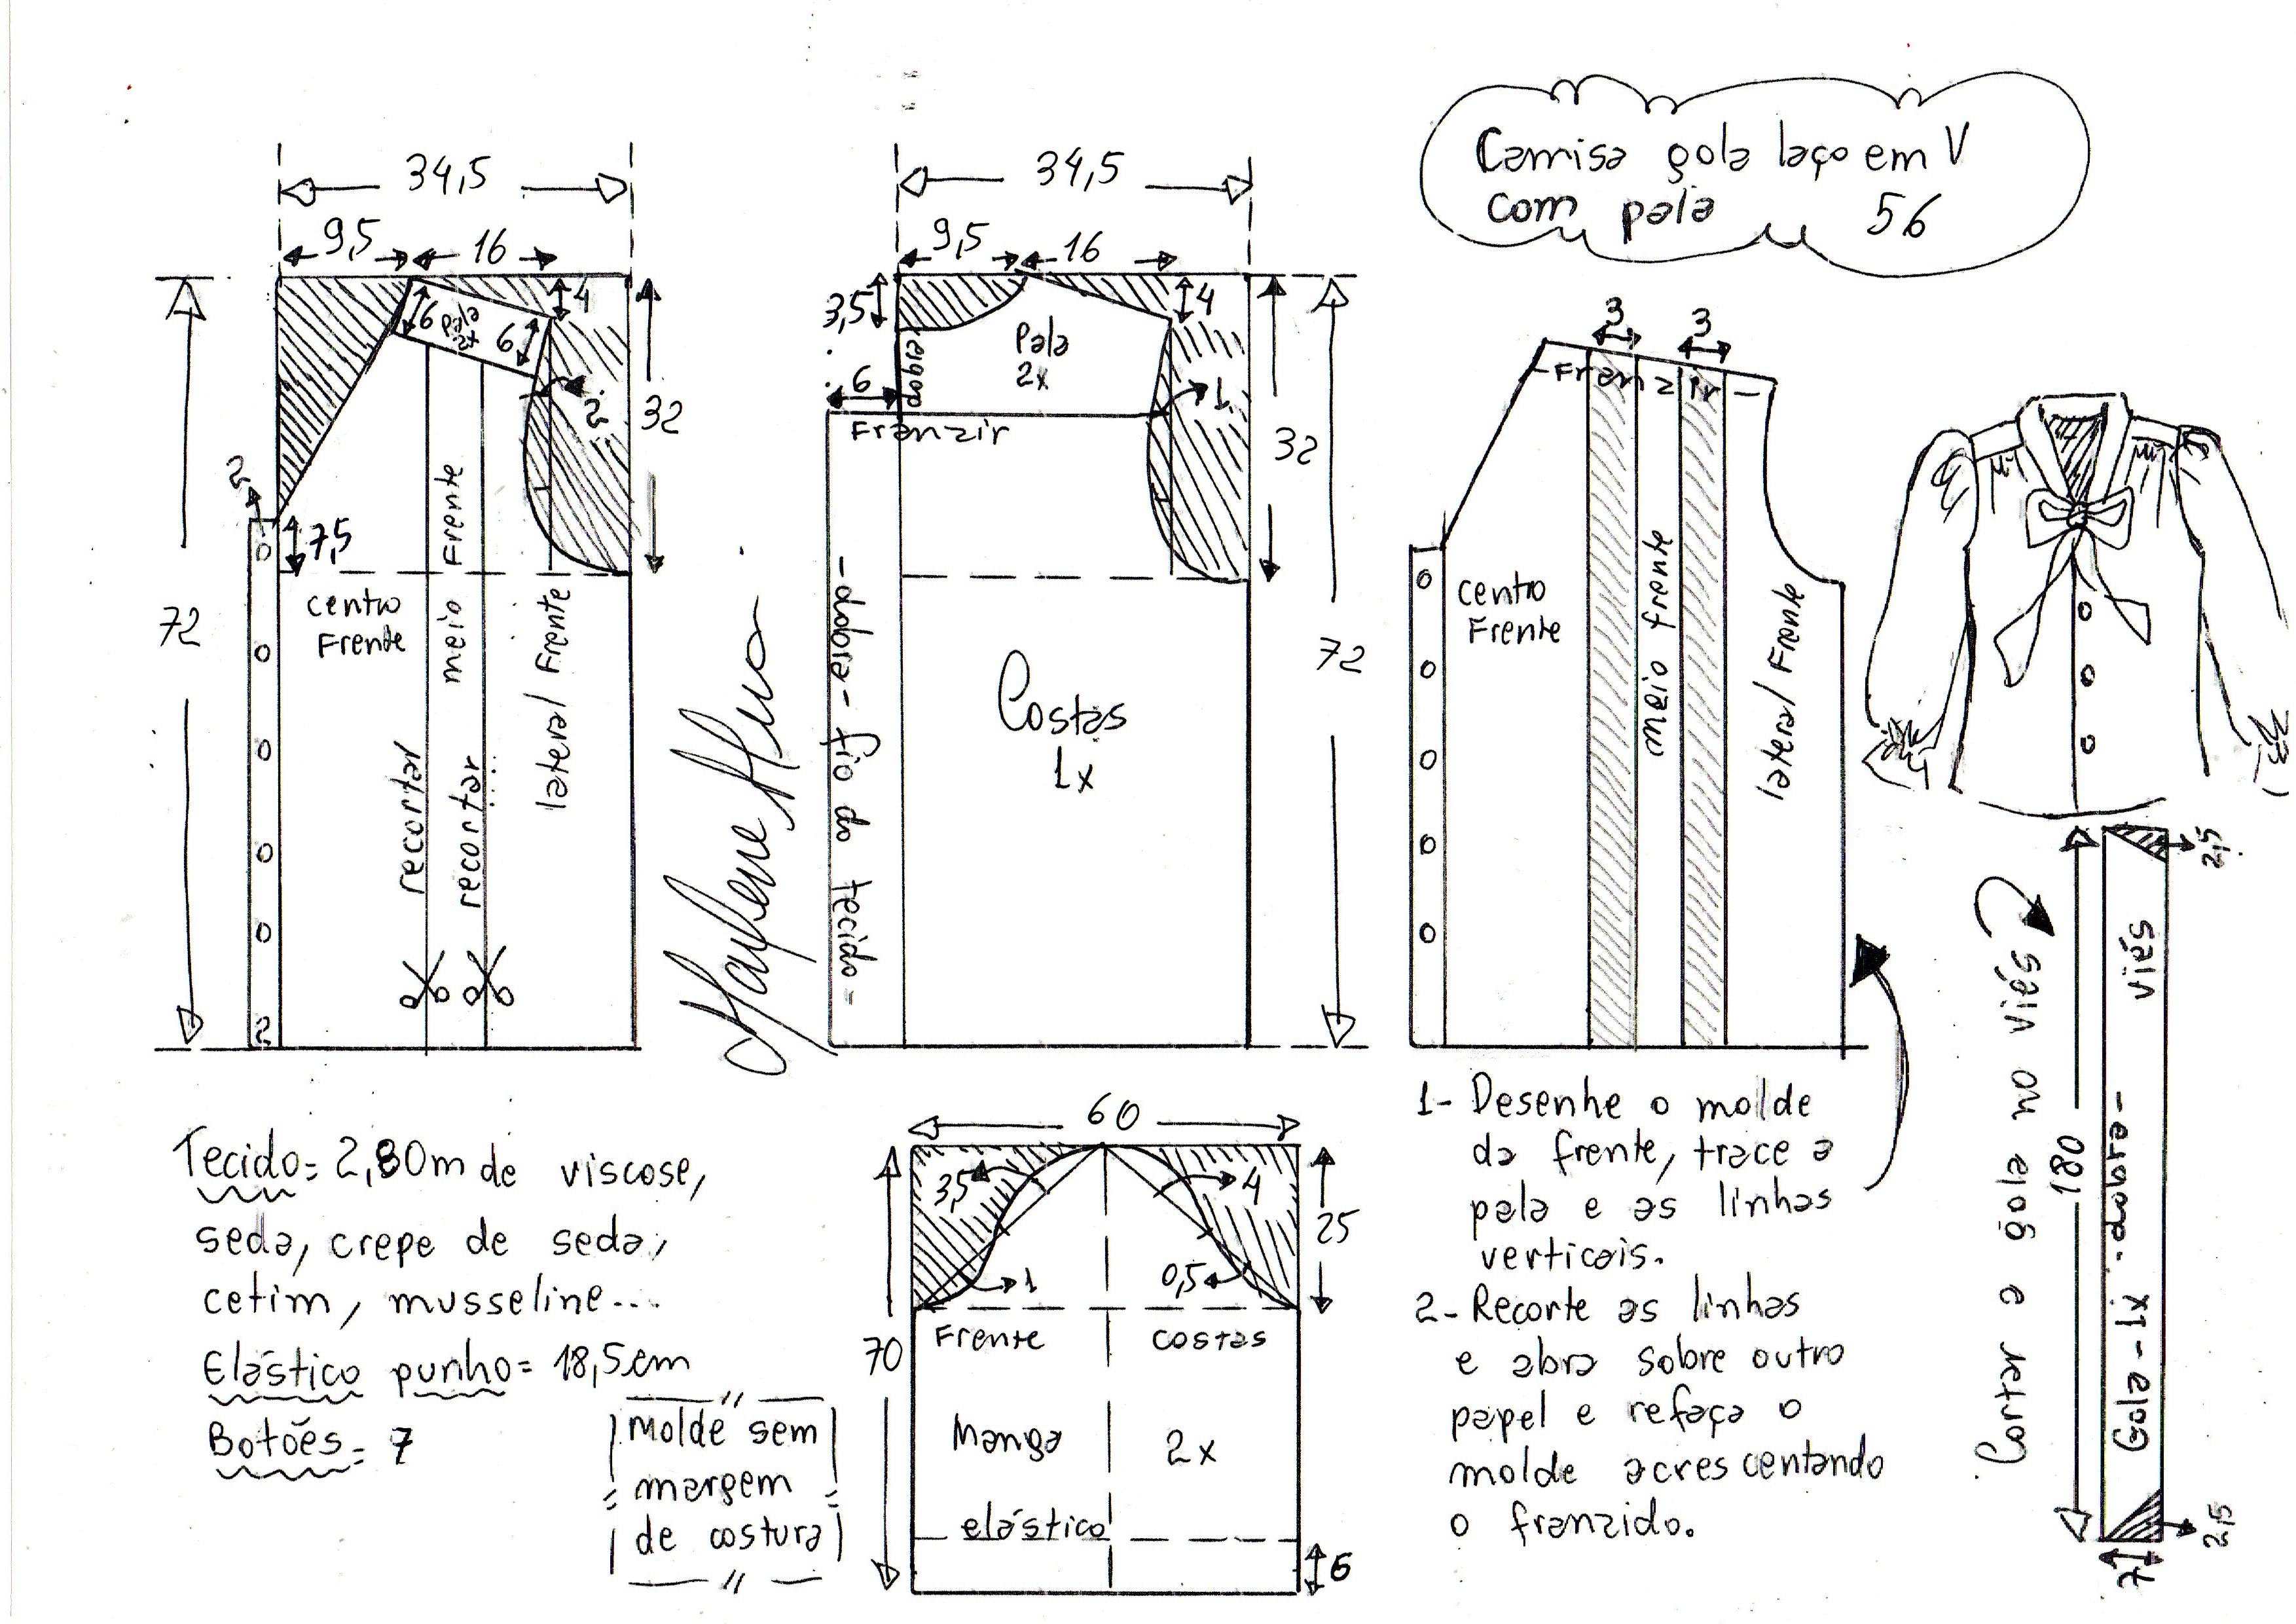 Camisa gola laço em V
com pala 56
34,5
9,5
16
6
Pala
2x
6
4
2
32
2
7,5
72
centro
Frente
meio Frente
lateral Frente
recortar
recortar
2
34,5
9,5
16
3,5
4
dobra
Pala
2x
6
1
Franzir
32
72
-dobra- fio do tecido-
Costas
1x
Marlene Mukai
3
3
-Franzir-
centro
Frente
meio frente
lateral Frente
2,5
180
viés
Gola - 1x -dobra-
Cortar a gola no viés
2,5
7
Tecido= 2,80m de viscose,
seda, crepe de seda,
cetim, musseline...
Elástico punho= 18,5cm
Botões= 7
molde sem
margem
de costura
60
3,5
4
25
1
0,5
Frente
costas
70
Manga 2x
elástico
6
1- Desenhe o molde
da frente, trace a
pala e as linhas
verticais.
2- Recorte as linhas
e abra sobre outro
papel e refaça o
molde acrescentando
o franzido.